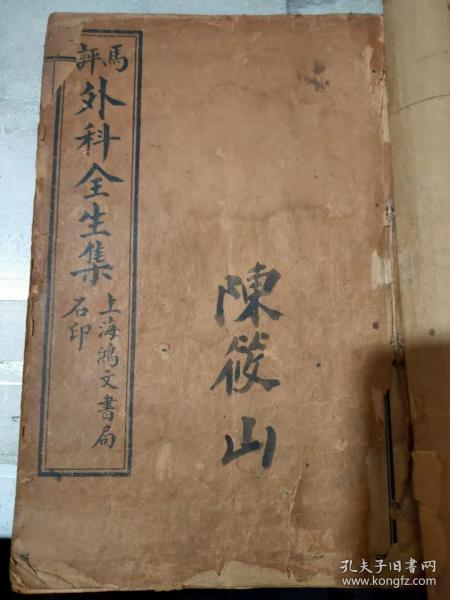 馬評
外科全生集
上海鴻文書局
石印
陳筱山
孔夫子旧书网
www.kongfz.com